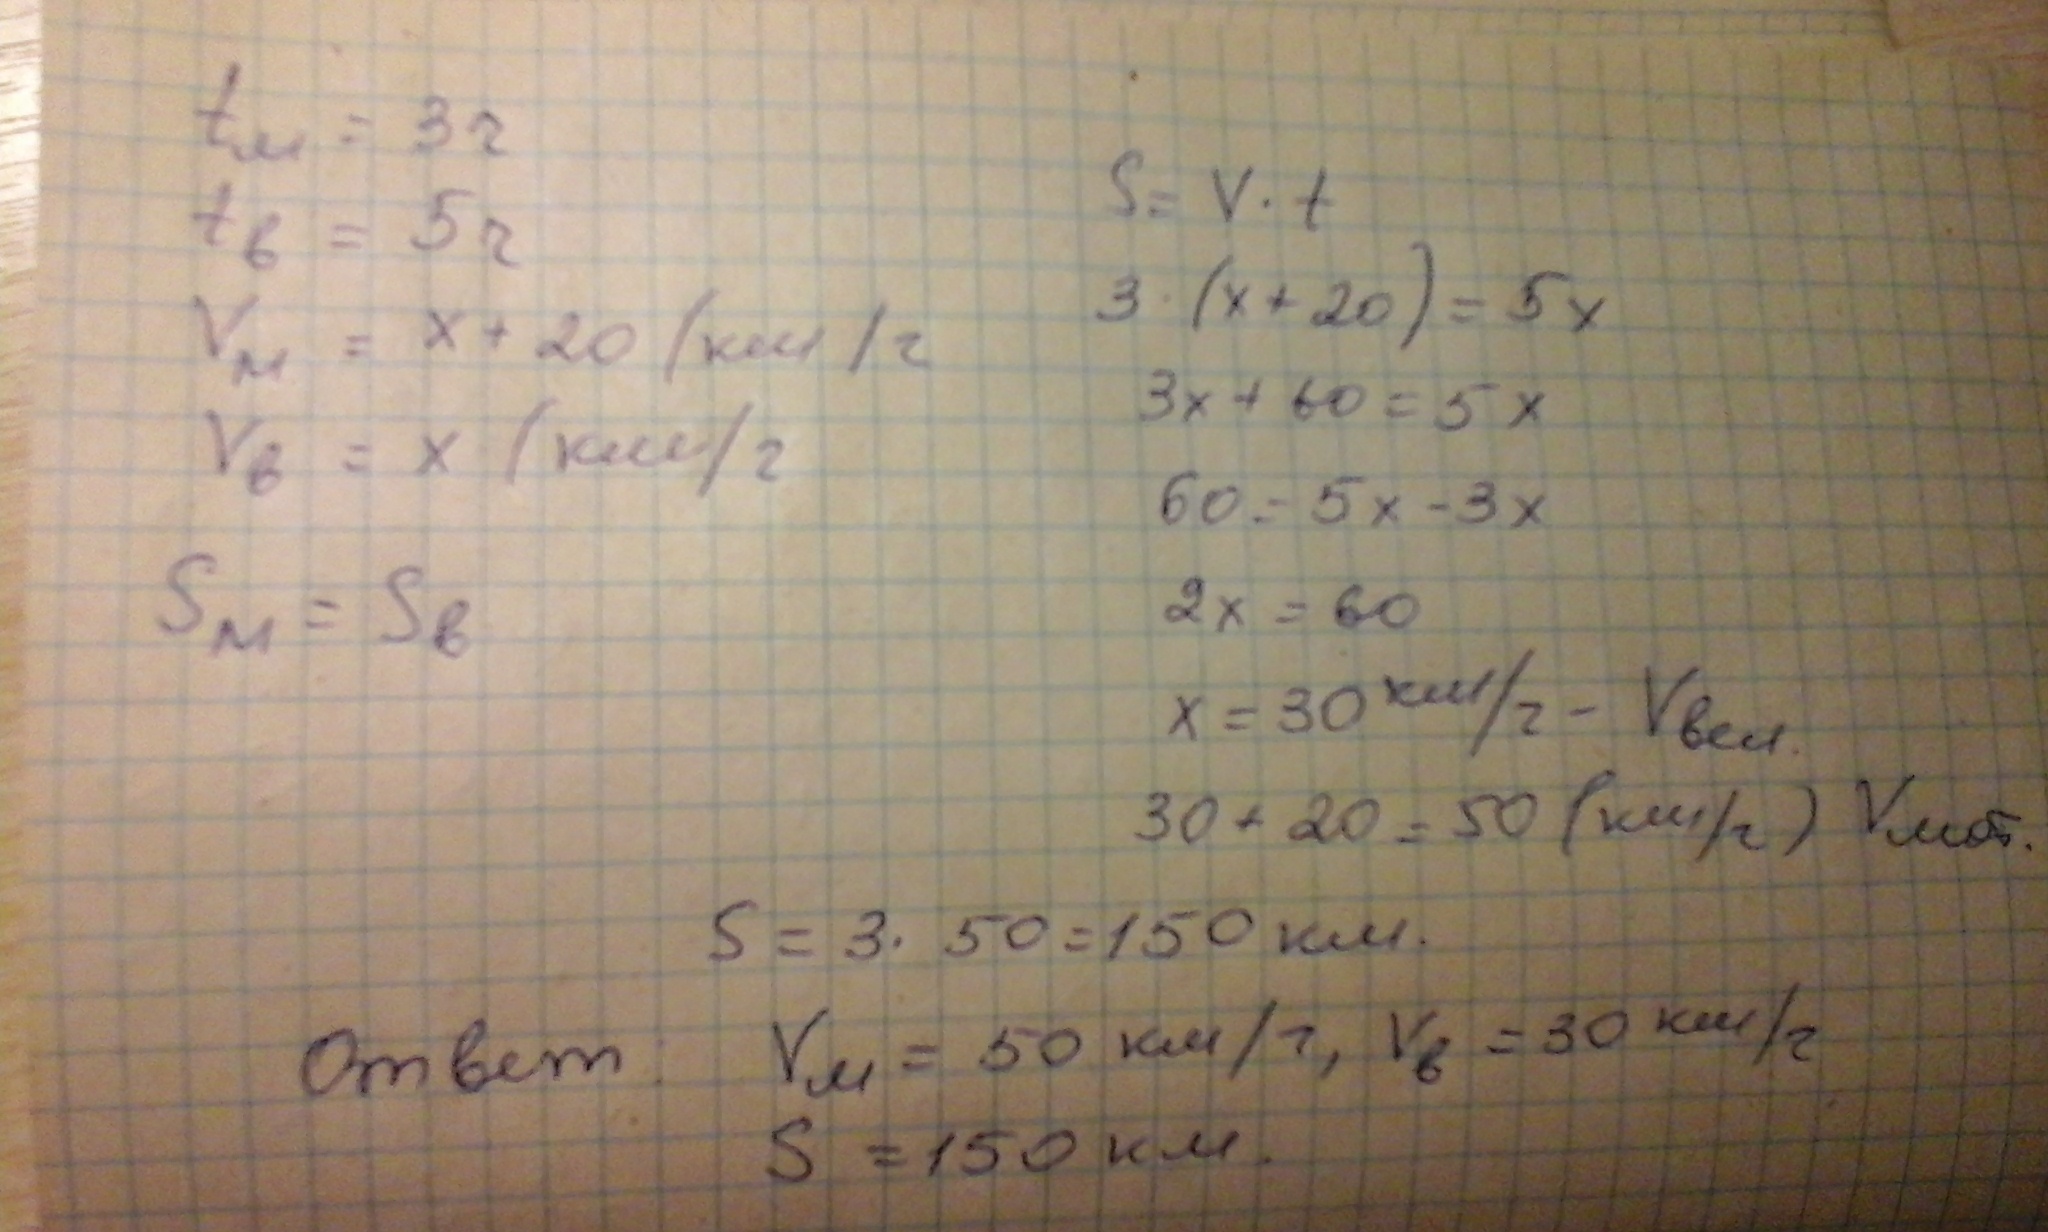 tм = 3ч
tв = 5ч
Vм = x + 20 (км/ч
Vв = x (км/ч
Sм = Sв
S = V · t
3 · (x + 20) = 5x
3x + 60 = 5x
60 = 5x - 3x
2x = 60
x = 30 км/ч - Vвел.
30 + 20 = 50 (км/ч) Vмот.
S = 3 · 50 = 150 км.
Ответ: Vм = 50 км/ч, Vв = 30 км/ч
S = 150 км.